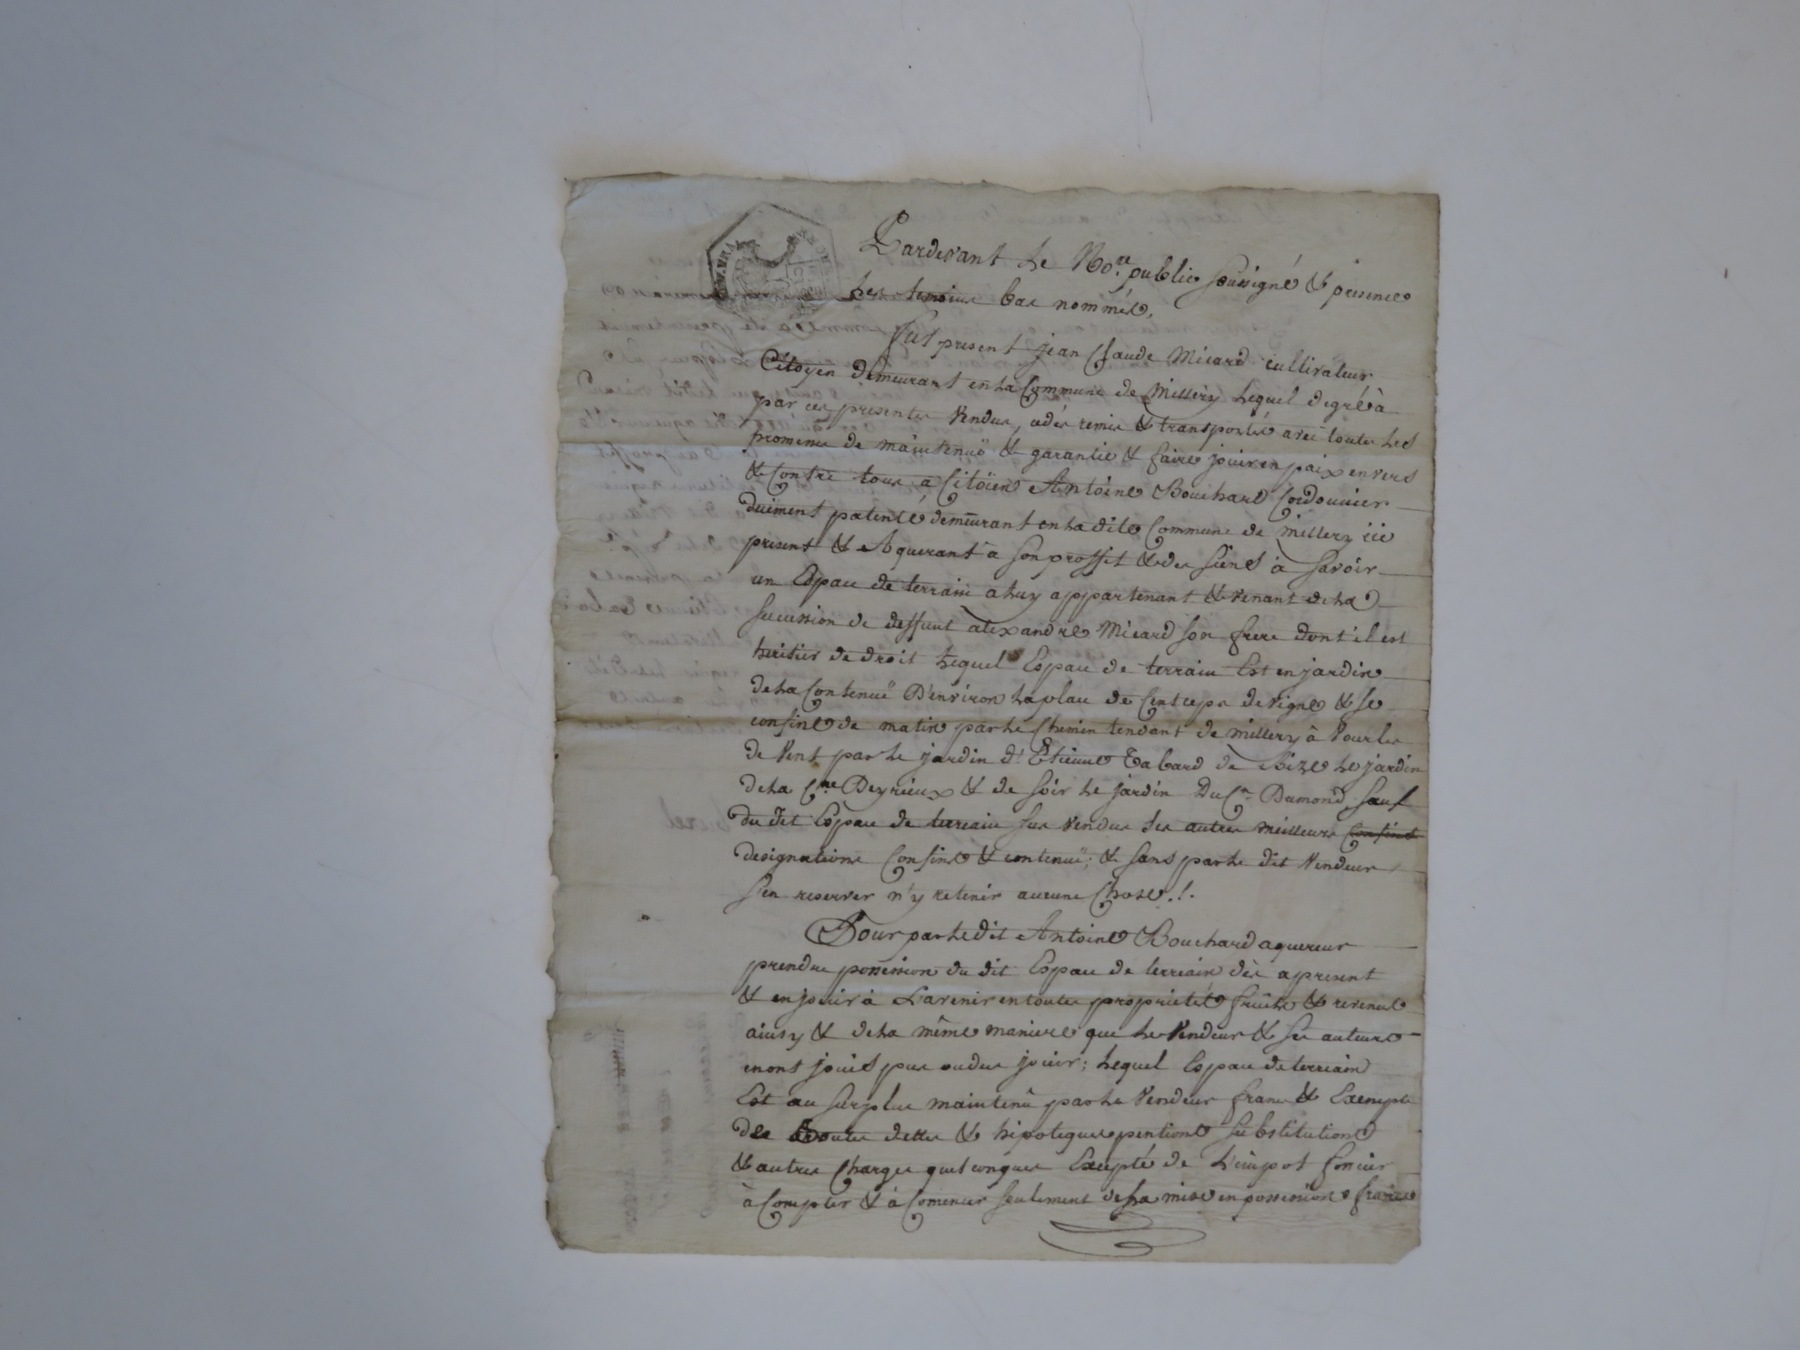 Pardevant Le No.re public soussigné & presence
les temoins bas nommés,
fut present jean Claude Micard cultivateur
Citoyen demeurant en la Commune de Millery lequel de gré à
par ces presentes Vendus, cédés remis & transportés avec toutes les
promesses de maintenuë & garantie & faire jouir en paix envers
& Contre tous a Citöien Antoine Bouchard Cordonnier
duëment patenté demeurant en la dite Commune de millery ici
present & Aquerant à son proffit & des siens à savoir
un Espace de terrain a luy appartenant & venant de la
sucession de deffunt alexandre Micard son frere dont il est
heritier de droit lequel Espace de terrain Est en jardin
de la Contenuë D'environ la place de Cent ceps de vigne & se
confine de matin par le Chemin tendant de millery à Vourles
de Vent par le jardin d'Etienne Tabard de Bize le jardin
de la C.ne Deyrieux & de soir le jardin Du C.n Dumond, sauf
du dit Espace de terrain sus Vendus ses autres meilleurs Confins
designations Confins & contenuë; & sans par le dit Vendeur
s'en reserver n'y retenir aucune Chose.!.
Pour par le dit Antoine Bouchard aquereur
prendre possession du dit Espace de terrain dès apresent
& en jouir à L'avenir en toutes proprietés fruits & revenus
ainsy & de la même maniere que le Vendeur & ses auteurs
en ont jouis pus ou dus jouir; lequel Espace de terrain
Est au surplus maintenû par le Vendeur franc & Exempts
des toutes dettes & hipoteques pentions substitutions
& autres Charges quelconques Excepté de L'impot foncier
à Compter & à Comencer seulement de sa mise en possession franc